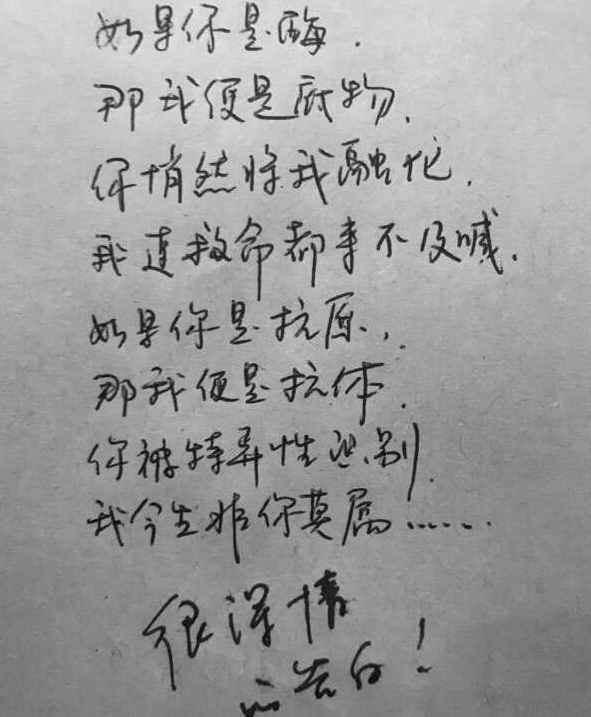 如果你是酶.
那我便是底物.
你悄然将我融化.
我连救命都来不及喊.
如果你是抗原.
那我便是抗体.
你被特异性识别.
我今生非你莫属......
很深情
的告白!